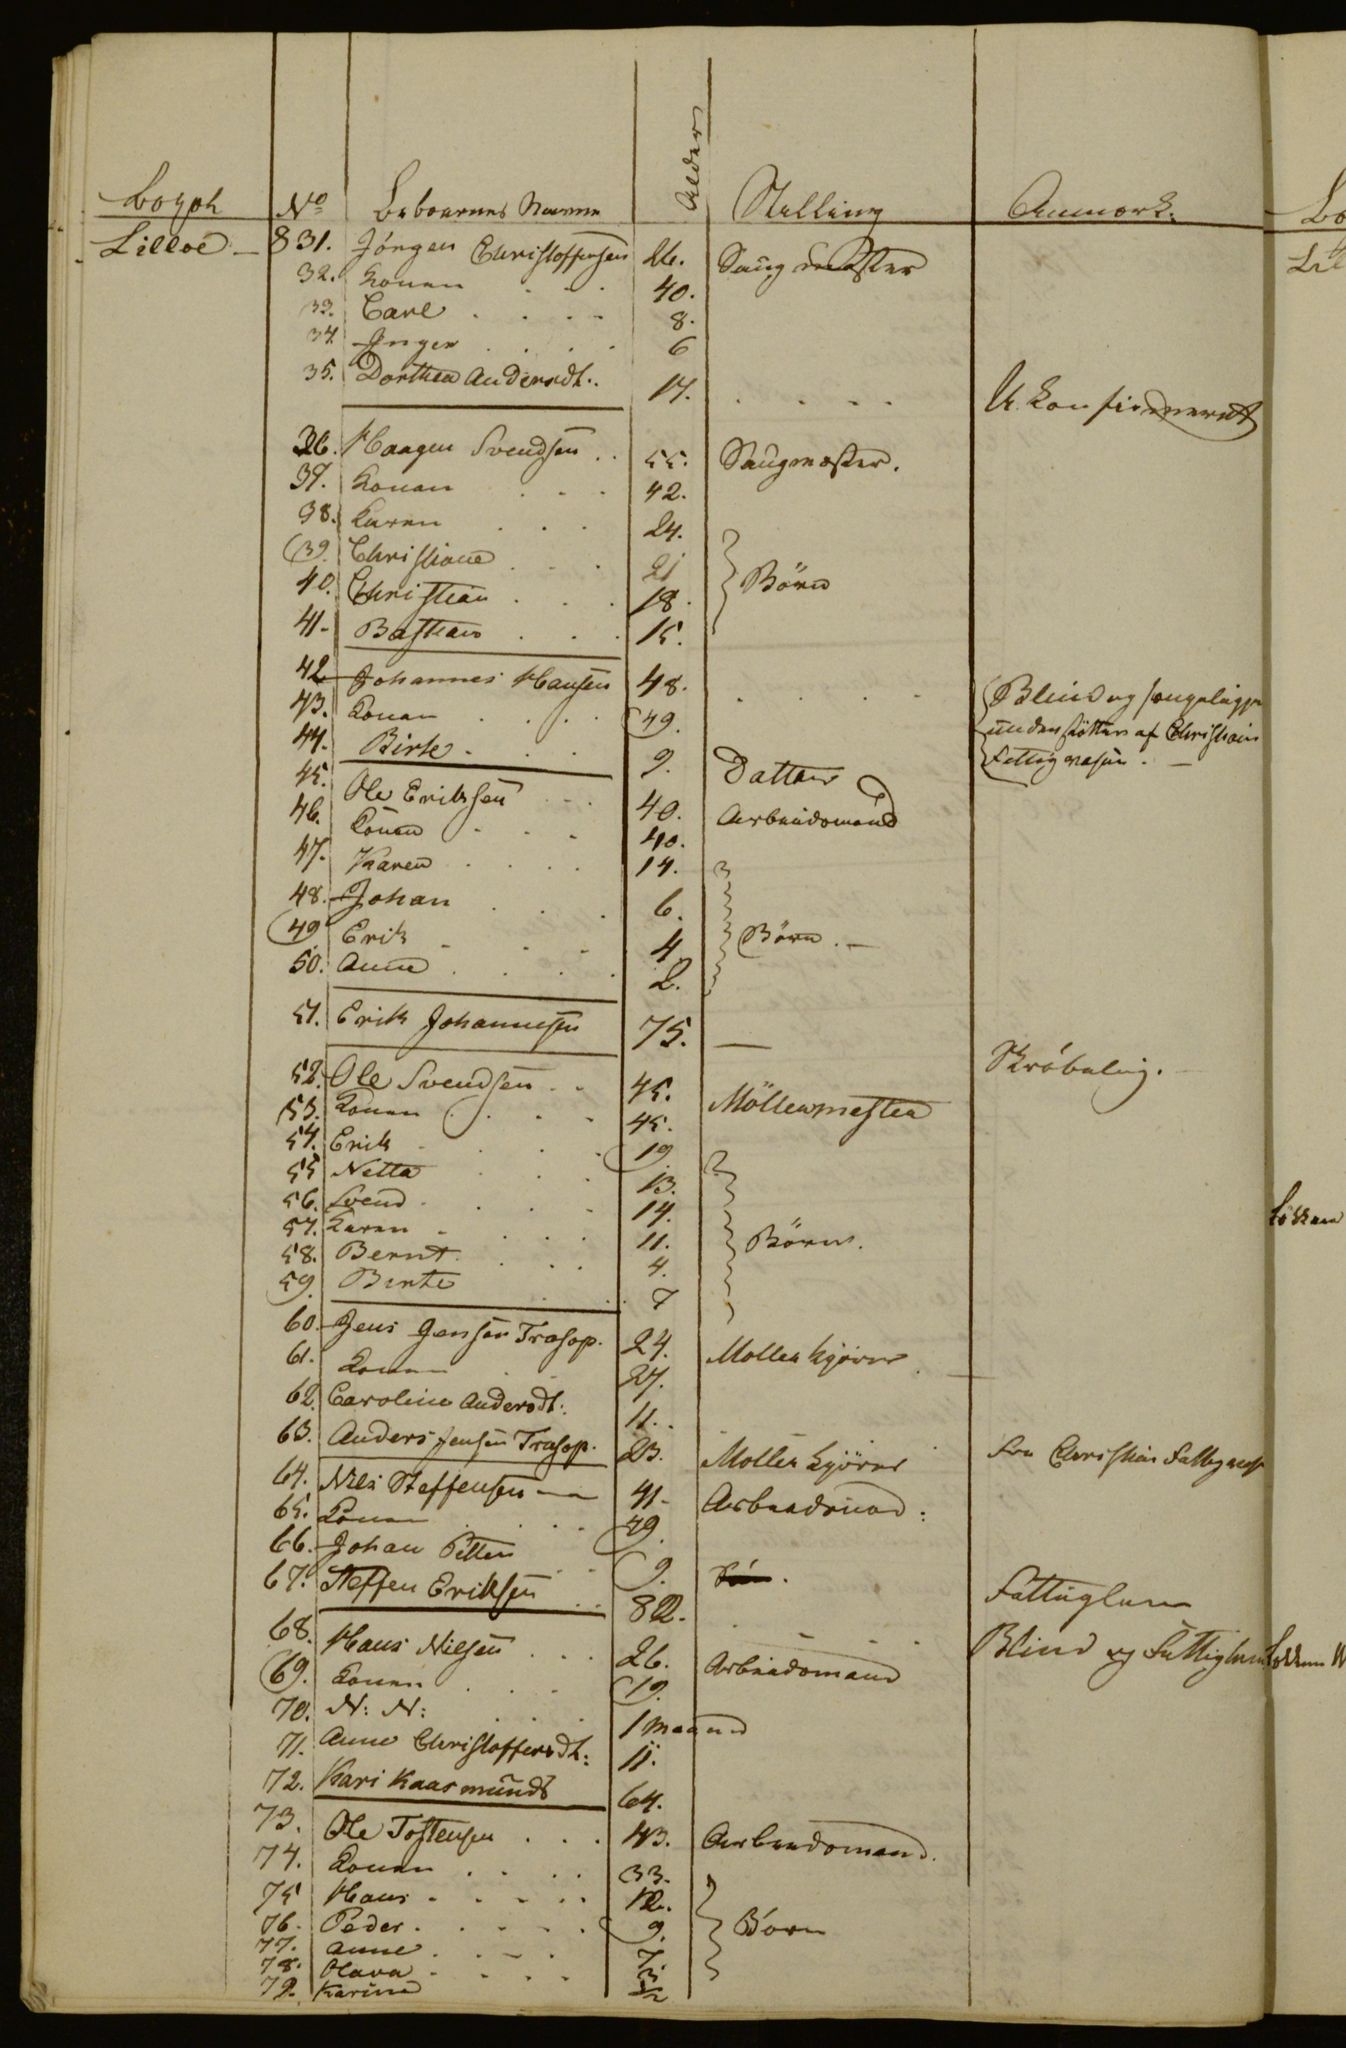 Bopæl No Beboernes Navne Alder Stilling Anmærk.
Lilloe – 831. Jörgen Christoffersen 26. Saugmester
32. Konen . . . 40.
33. Carl . . . . 8.
34. Inger . . . . 6
35. Dorthea Andersdt. . 17. . . . . U konfirmeret
36. Haagen Svendsen . . 55. Saugmester.
37. Konen . . . 42.
38. Karen . . . 24.
39. Christiane . . . 21
40. Christian . . . 18. Börn
41. Bastian . . . 15.
42 Johannes Hansen 48. . . . . Blind og sengeliggende
43. Konen . . . . 49. understöttes af Christiania
44. Birte . . . 9. Datter Fattigvæsen. –
45. Ole Eriksen . . . 40. Arbeidsmand
46. Konen . . . 40.
47. Karen . . . . 14.
48. Johan . . . 6.
49 Erik . . . 4 Börn. –
50. Anne . . . . 2.
51. Erik Johannesen 75. — Skröbelig. –
52. Ole Svendsen . . 45. Möllemester
53. Konen . . . . 45.
54. Erik . . . . 19
55 Netta . . . 13.
56. Svend . . . . 14.
57. Karen . . . . 11. Börn.
58. Bernt . . . . 4.
59. Birte . . . 7
60. Jens Jensen Trasop. 24. Mollekjörer
61. Konen . . 27.
62. Caroline Andersdt: 11. .
63. Anders Jensen Trasop. 23. Mollekjörer fra Christian Fattigvæs
64. Niels Steffensen — 41. Arbeidsmd:
65. Konen . . . . 49.
66. Johan Petter . . 9. Sön.
67. Steffen Eriksen . . 82. . . . . Fattiglem
68. Hans Nilsen . . . 26. Arbeidsmand Blind og Fattiglem
69. Konen . . . 19.
70. N: N: . . . . 1 maaned
71. Anne Christoffersdt: 11.
72. Kari Kaasmunds 64.
73. Ole Tostensen . . . 43. Arbeidsmand.
74. Konen . . . . 33.
75 Hans . . . . . 12.
76. Peder . . . . . 9. Börn
77. Anne . . . . 7.
78. Olava . . . . 3.
79. Karine 1/2